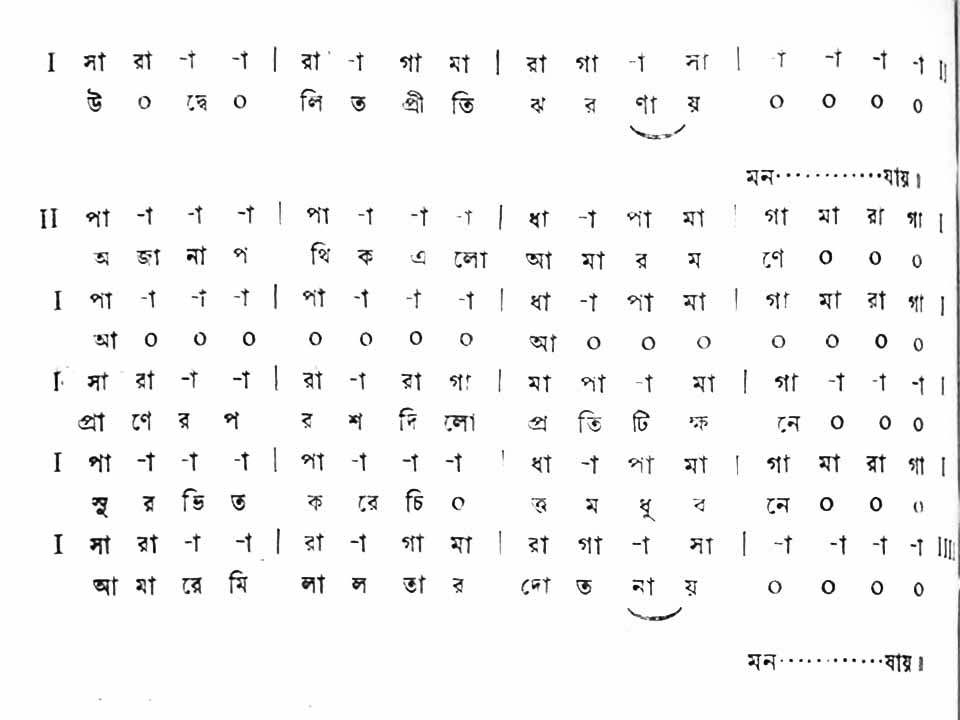 I সা রা -া -া | রা -া গা মা | রা গা -া সা | -া -া -া -া II
উ ০ দ্বে ০ লি ত প্রী তি ঝ র ণা য় ০ ০ ০ ০
মন············যায়।
II পা -া -া -া | পা -া -া -া | ধা -া পা মা | গা মা রা গা I
অ জা না প থি ক এ লো আ মা র ম ণে ০ ০ ০
I পা -া -া -া | পা -া -া -া | ধা -া পা মা | গা মা রা গা I
আ ০ ০ ০ ০ ০ ০ ০ আ ০ ০ ০ ০ ০ ০ ০
I সা রা -া -া | রা -া রা গা | মা পা -া মা | গা -া -া -া I
প্রা ণে র প র শ দি লো প্র তি টি ক্ষ নে ০ ০ ০
I পা -া -া -া | পা -া -া -া | ধা -া পা মা | গা মা রা গা I
সু র ভি ত ক রে চি ০ ত্ত ম ধু ব নে ০ ০ ০
I সা রা -া -া | রা -া গা মা | রা গা -া সা | -া -া -া -া IIII
আ মা রে মি লা ল তা র দো ত না য় ০ ০ ০ ০
মন············যায়।